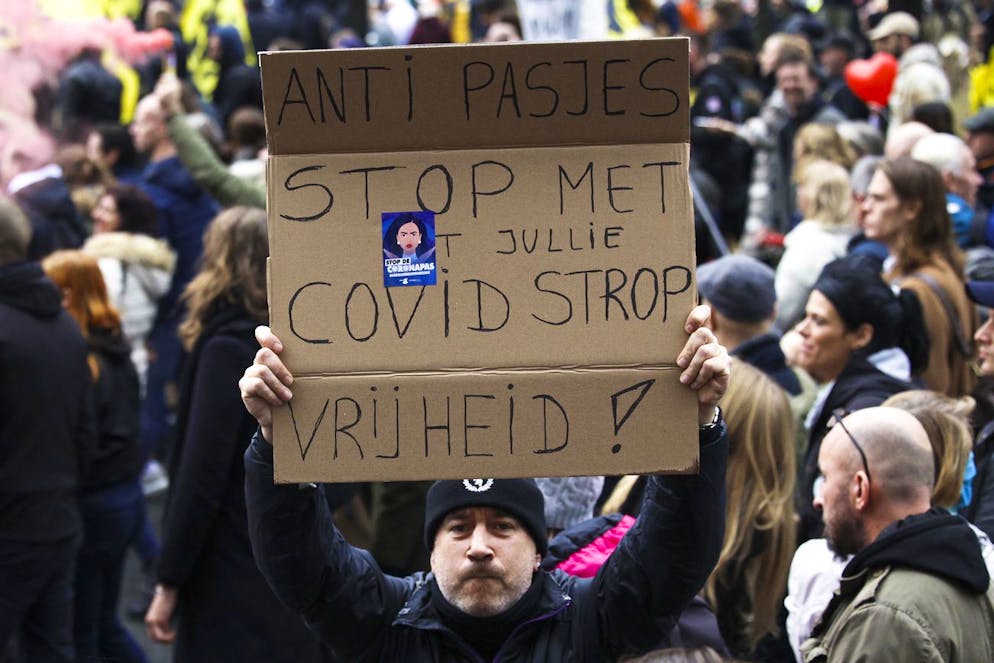 ANTI PASJES
STOP MET
T JULLIE
COVID STROP
VRIJHEID !
STOP DE
CORONAPAS